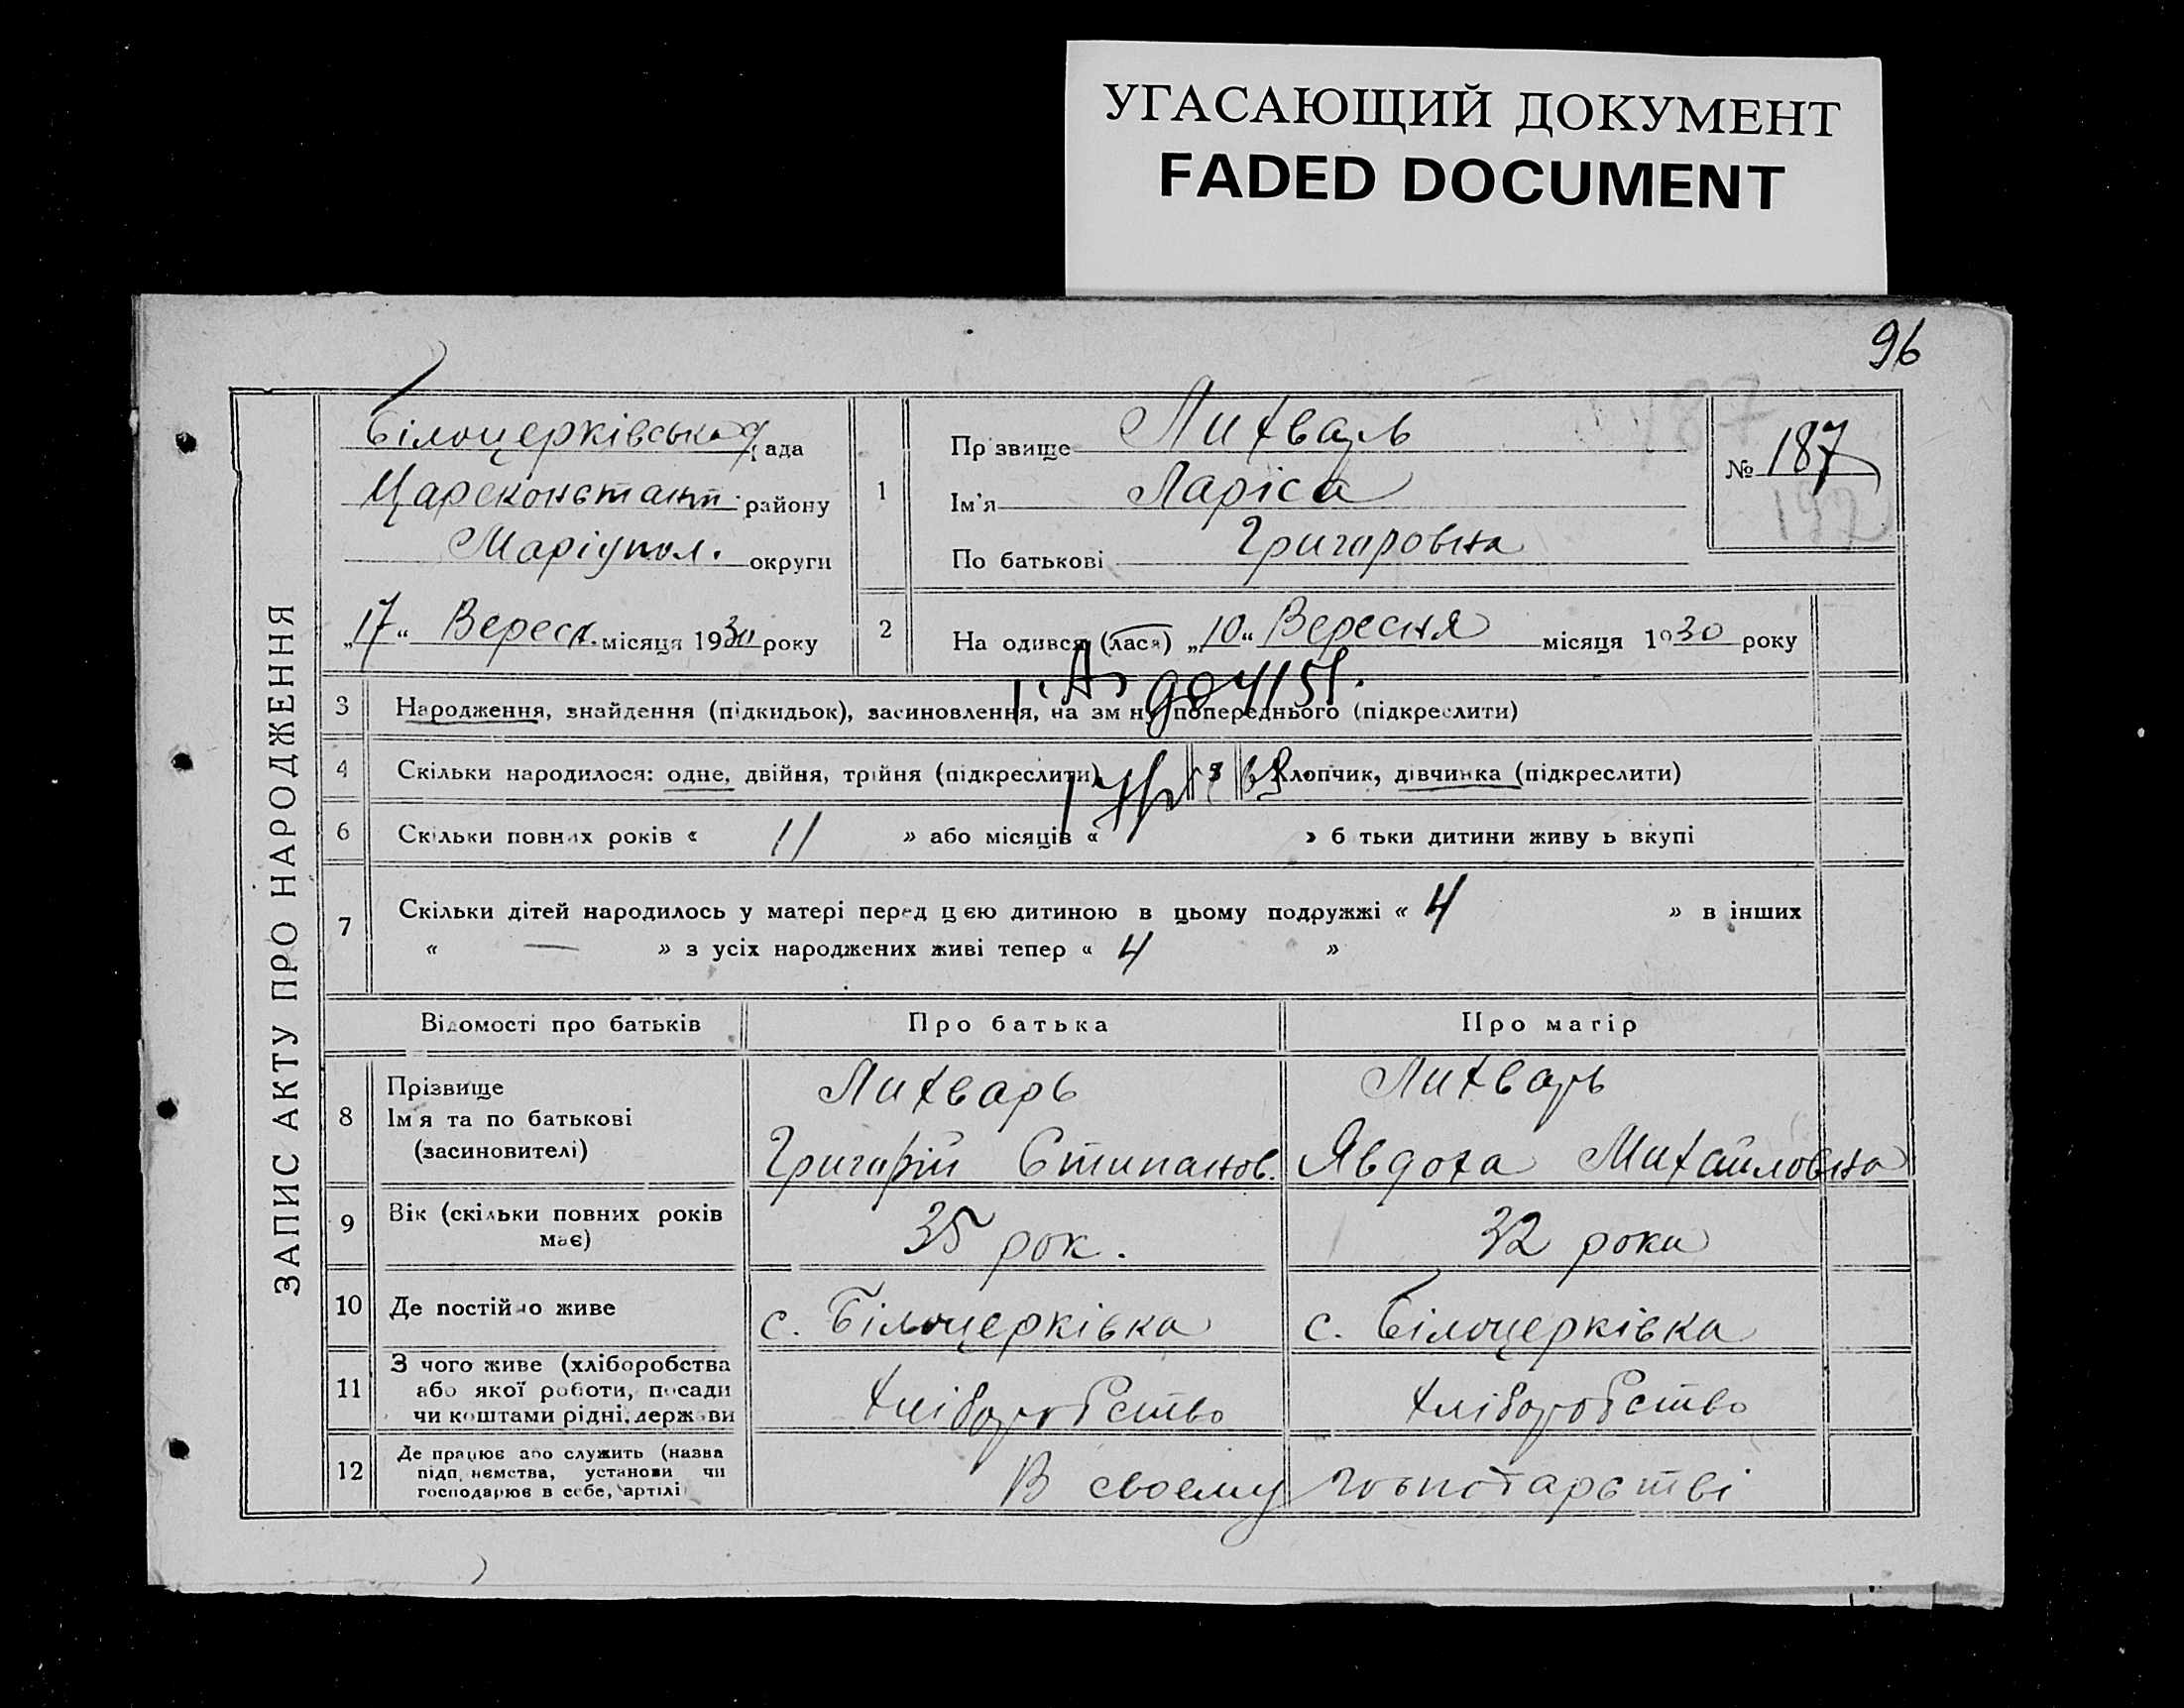 УГАСАЮЩИЙ ДОКУМЕНТ
FADED DOCUMENT
96
ЗАПИС АКТУ ПРО НАРОДЖЕННЯ
Білоцерківська рада
Цареконстант. району
Маріупол. округи
„17“ Вересн. місяця 1930 року
1
Прізвище Лихварь
Ім'я Ларіса
По батькові Григоровна
№ 187
187
2 На одився (лася) „10“ Вересня місяця 1930 року
3 Народження, знайдення (підкидьок), засиновлення, на зм ну попереднього (підкреслити)
4 Скільки народилося: одне, двійня, трійня (підкреслити) хлопчик, дівчинка (підкреслити)
6 Скільки повних років « 11 » або місяців « » б тьки дитини живу ь вкупі
7 Скільки дітей народилось у матері перед цією дитиною в цьому подружжі « 4 » в інших
« — » з усіх народжених живі тепер « 4 »
Відомості про батьків Про батька Про матір
8 Прізвище
Ім'я та по батькові
(засиновителі)
Лихварь
Григорій Стипанов.
Лихварь
Явдоха Михайловна
9 Вік (скільки повних років
має)
35 рок. 32 роки
10 Де постійно живе с. Білоцерківка с. Білоцерківка
11 З чого живе (хліборобства
або якої роботи, посади
чи коштами рідні, держави
хліборобство хліборобство
12 Де працює або служить (назва
підп, нємства, установи чи
господарює в себе, артілі
В своему госпотарстві